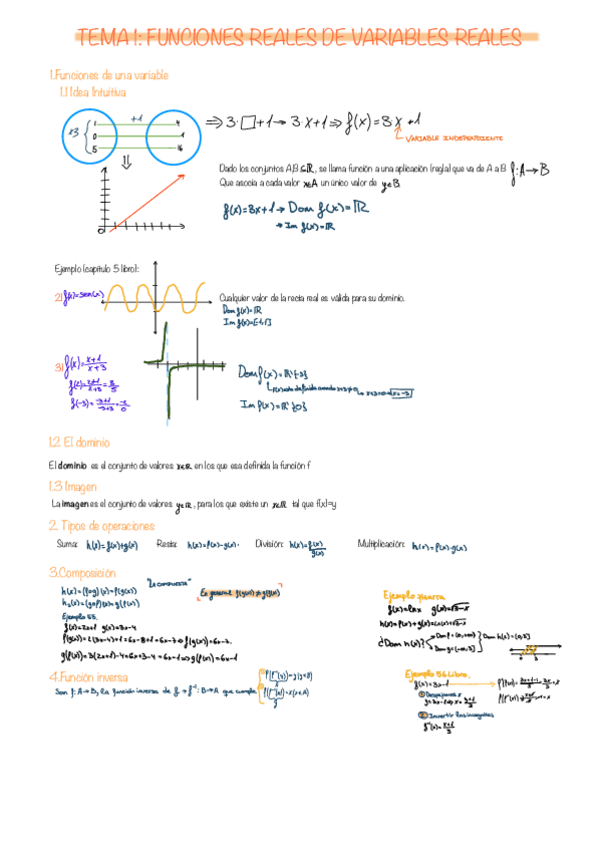 TEMA 1: FUNCIONES REALES DE VARIABLES REALES
1.Funciones de una variable
1.1 Idea Intuitiva
+1
×3 { 1 0 5
4 1 16
⇒ 3·□+1 → 3·x+1 ⇒ f(x)=3x+1
VARIABLE INDEPENDIENTE
Dado los conjuntos A,B ⊆ ℝ, se llama función a una aplicación (regla) que va de A a B f: A→B
Que asocia a cada valor x∈A un único valor de y∈B.
f(x)=3x+1 → Dom f(x)=ℝ
→ Im f(x)=ℝ
0
Ejemplo (capítulo 5 libro):
2) f(x)=sen(x)
Cualquier valor de la recta real es válida para su dominio.
Dom f(x)=ℝ
Im f(x)=[-1,1]
3) f(x)=x+1/x+3
Dom f(x)=ℝ\{-3}
f(-3)=-3+1/-3+3=-2/0
Im f(x)=
1.2 El dominio
El dominio es el conjunto de valores x∈ℝ en los que esa definida la función f
1.3 Imagen
La imagen es el conjunto de valores y∈ℝ, para los que existe un x∈ℝ tal que f(x)=y
2. Tipos de operaciones
Suma: h(x)=f(x)+g(x) Resta: h(x)=f(x)-g(x). División: h(x)=f(x)/g(x) Multiplicación: h(x)=f(x)·g(x)
3.Composición
"La compuesta"
h(x)=(f∘g)(x)=f(g(x))
h₂(x)=(g∘f)(x)=g(f(x))
En general f(g(x))≠g(f(x))
Ejemplo 55.
f(x)=2x+1 g(x)=3x-4
f(g(x))=2(3x-4)+1=6x-8+1=6x-7 ⇒ f(g(x))=6x-7.
g(f(x))=3(2x+1)-4=6x+3-4=6x-1 ⇒ g(f(x))=6x-1
Ejemplo pizarra
f(x)=lnx
¿Dom h(x)?
4.Función inversa
Son f: A→B, la función inversa de f → f⁻¹: B→A que cumple
Ejemplo 56 Libro.
f(x)=3x-1
① Despejamos x
② Invertir las incognitas
f⁻¹(x)=x+1/3